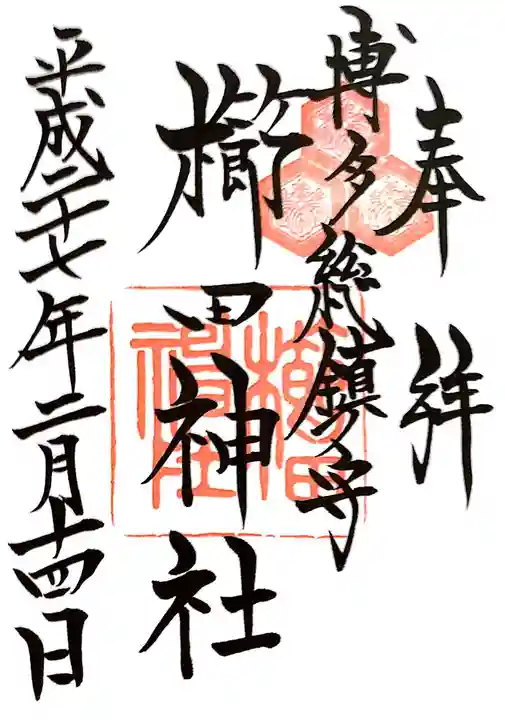 奉拝
博多総鎮守
櫛田神社
平成二十七年二月十四日